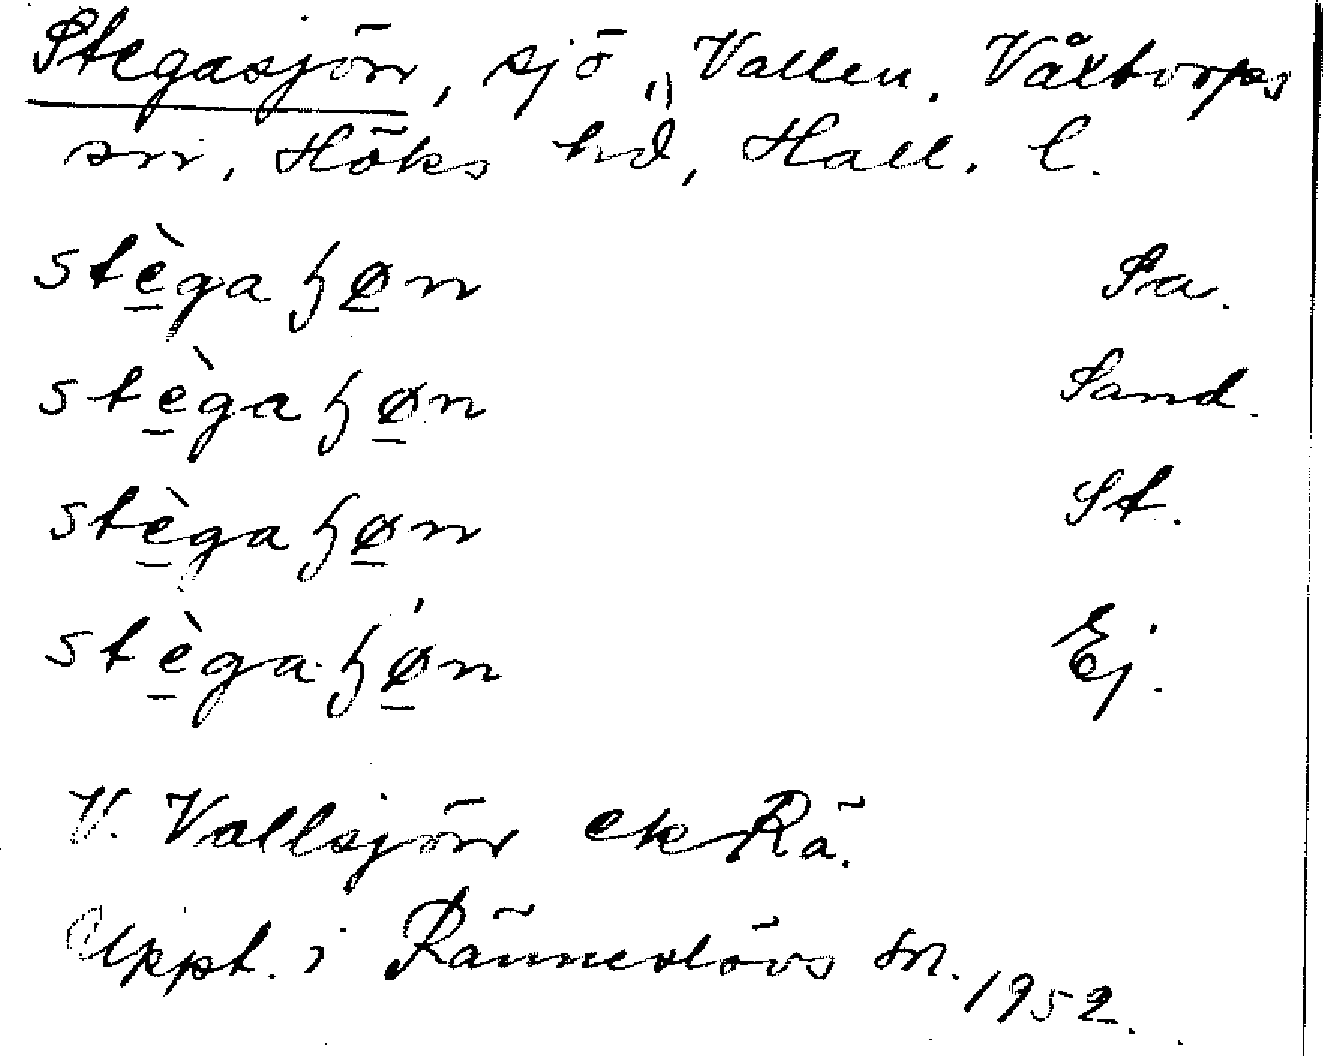 Stegasjön, sjö, Vallen. Våxtorps
sn, Höks hd, Hall. l.
stègaɧøn Sa.
stègaɧøn Sand.
stègaɧøn St.
stègaɧǿn Ej.
V. Vallsjön ek Rä.
Uppt. i Ränneslövs sn. 1952.